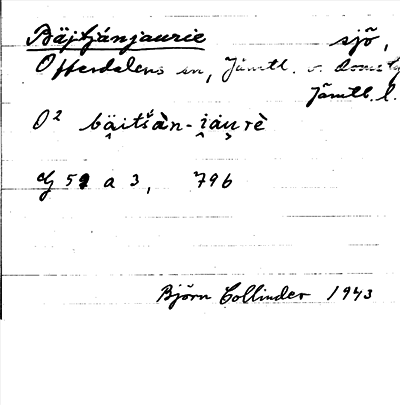 Bäjtjánjaurie sjö,
Offerdalens sn, Jämtl. v. doms
Jämtl. l.
O² bäi̯tšàn-i̯au̯rè
G 51 a 3, 796
Björn Collinder 1943